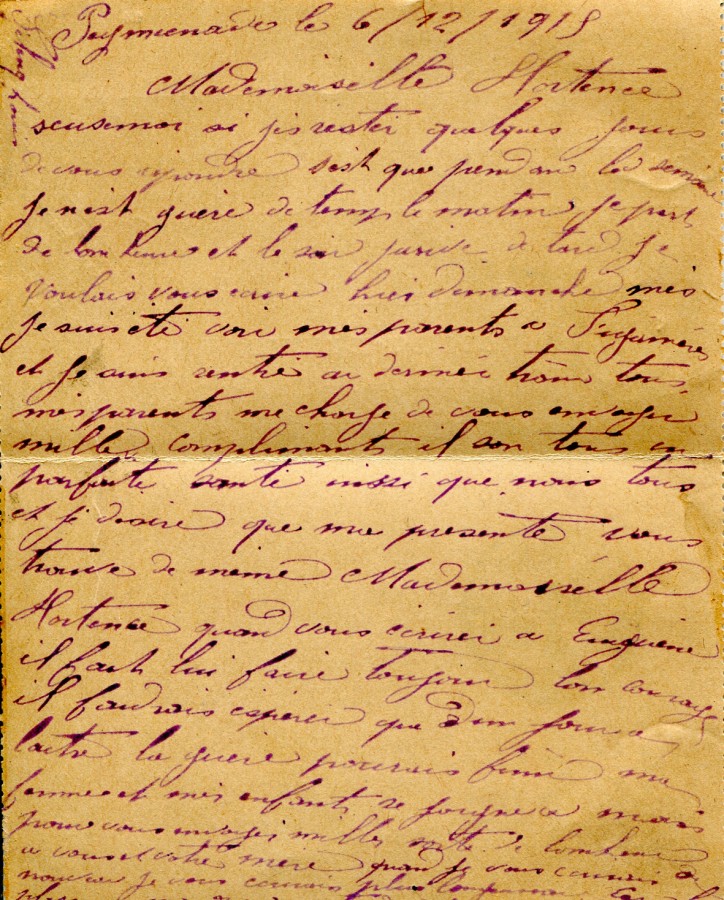 Puymenade le 6/12/1915
Mademoiselle Hortence
scusemoi si je rester quelques jours
de vous repondre sest que pendan la semaine
Je nest guère de temp le matin je part
de bonheure et le soir jarive de tard Je
voulais vous ecrire hier dimanche mes
Je suis été voir mes parents a
et Je suis rentré au derniér tous
mes parents me charge de vous envoyer
mille compliments il son tous en
parfaite sante inssi que nous tous
et je desire que ma presente vous
trouve de meme Mademoiselle
Hortence quand vous ecrirer a Eugene
il faut lui faire toujour bon courage
il faudrais esperer que dun jour a
lautre la guere pourrais finir ma
femme et mes enfants se joigne a mois
pour vous envoyer milles de bonheur
a vous et votre mère quand je vous
nouveau je vous plus